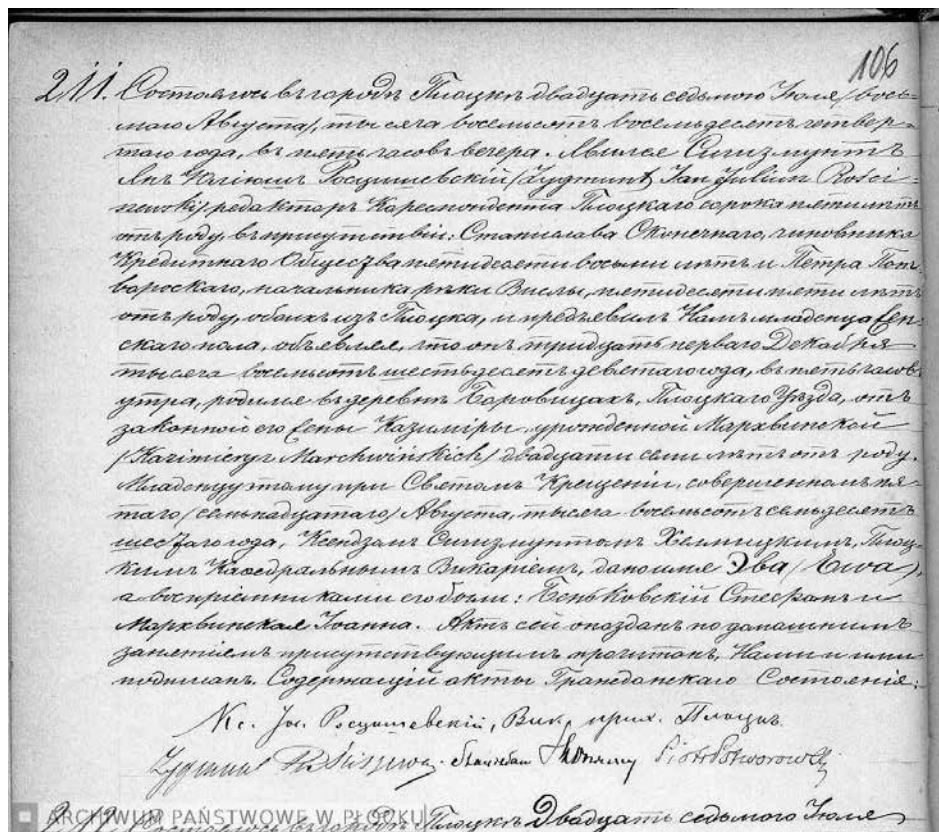 106
211. Состоялось въ городѣ Плоцкѣ двадцать седьмого Іюля /вось-
маго Августа/, тысяча восемьсотъ восемьдесятъ четвер-
таго года, въ пять часовъ вечера. Явился Сигизмунтъ
Янъ Юліюшъ Росцишевскій /Zygmunt Jan Julian Rości-
szewski/ редакторъ Кореспондента Плоцкаго сорока пяти лѣтъ
отъ роду, въ присутствіи: Станислава Сконечнаго, чиновника
Кредитнаго Общества пятидесяти восьми лѣтъ и Петра Пот-
вороскаго, начальника рѣки Вислы, пятидесяти пяти лѣтъ
отъ роду, обоихъ изъ Плоцка, и предъявилъ Намъ младенца жен-
скаго пола, объявляя, что онъ тридцать перваго Декабря
тысяча восемьсотъ шестьдесятъ девятаго года, въ пять часовъ
утра, родился въ деревнѣ Боровицахъ, Плоцкаго Уѣзда, отъ
законной его жены Казиміры, урожденной Мархвинской
/Kazimiery z Marchwińskich/ двадцати семи лѣтъ отъ роду.
Младенцу этому при Святомъ Крещеніи, совершенномъ пя-
таго /семнадцатаго/ Августа, тысяча восемьсотъ семьдесятъ
шестаго года, Ксендзомъ Сигизмунтомъ Хелмицкимъ, Плоц-
кимъ Каѳедральнымъ Викаріемъ, дано имя Эва /Ewa/,
а воспріемниками его были: Беньковскій Стефанъ и
Мархвинская Іоанна. Актъ сей опозданъ по домашнимъ
занятіямъ присутствующимъ прочитанъ, Нами и ими
подписанъ. Содержащій акты Гражданскаго Состоянія:
Кс. Іос. Росцишевскій, Вик. прих. Плоцк.
Zygmunt Rościszewski Stanisław Skonieczny Piotr Potworowski
212. Состоялось въ городѣ Плоцкѣ Двадцать седьмого Іюля
ARCHIWUM PAŃSTWOWE W PŁOCKU